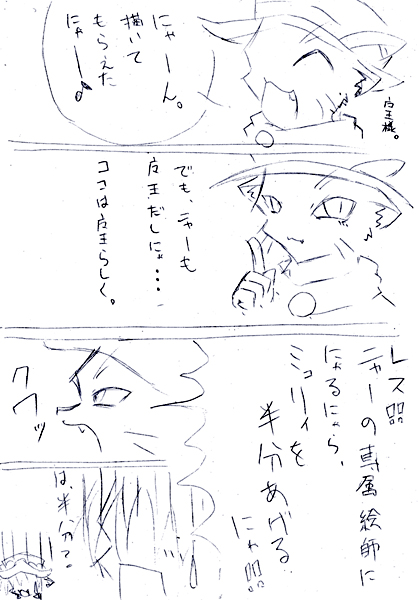 にゃーん。
描いて
もらえた
にゃー♪
女王様。
でも、ニャーも
女王だしにゃ・・・
ココは女王らしく。
レス㍂
ニャーの専属絵師に
にゃるにゃら、
ミュリィを
半分あげる
にゃ
クワッ
は、半分て。